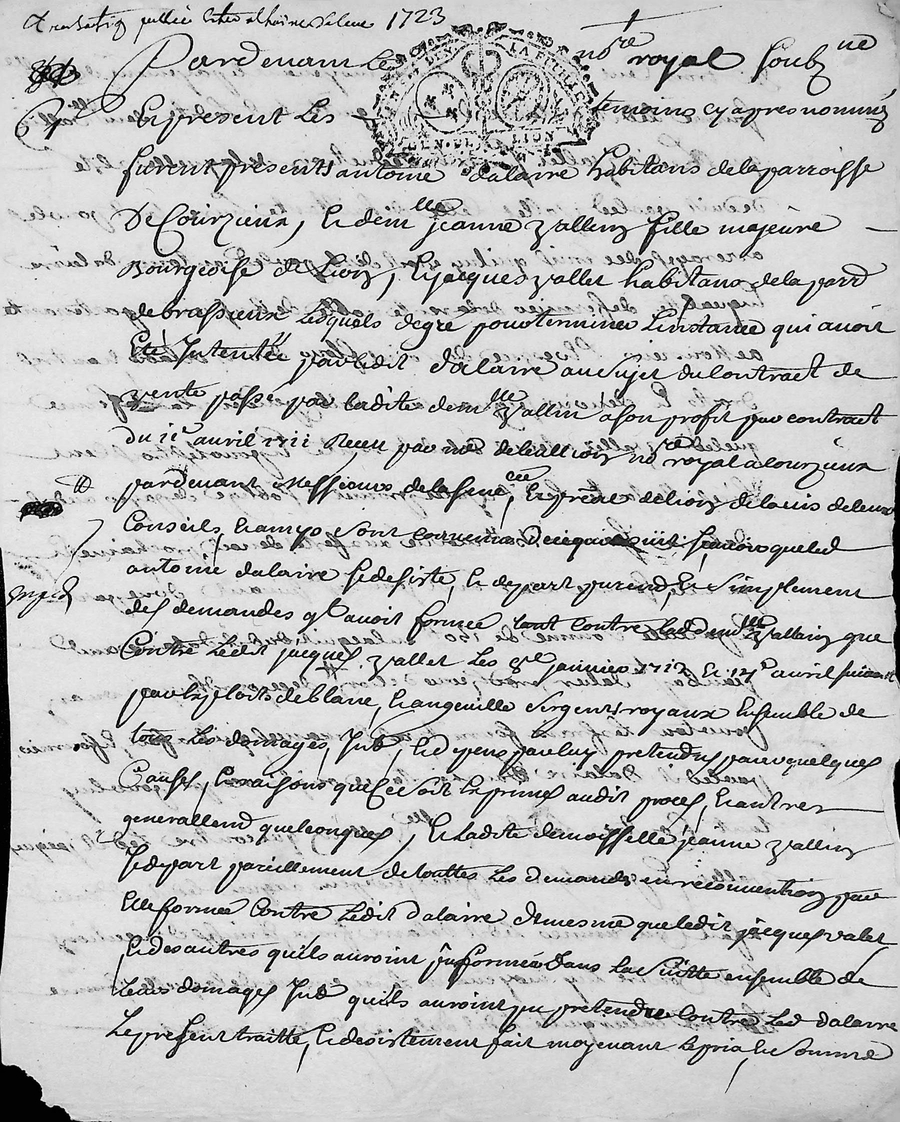 1723
Pardevant Le no.re royal soub.ne
Et present Les temoins cy apres nommés
furent presents antoine dalaire habitans de la parroisse
De Courzieux, Et dem.lle jeanne vallin fille majeure
Bourgeoise de Lion, Et jacques vallet habitans de la parr
de brassieux Lesquels de gre pour terminer Linstance qui avoit
Eté Intentée par ledit dalaire au sujet du Contract de
vente passé par ladite dem.lle vallin a son profit par contract
du 11e avril 1711 Receu par me no.re royal a Courzieux
pardevant Messieurs de la Et de lion de lavis de leurs
Conseils, Et amys sont convenus sçavoir que led
antoine dalaire se desiste, Et depart purem.t, Et simplement
des demandes q.l avoit formée tant contre Lad. dem.lle vallin que
Contre Ledit jacques vallet Les janvier 1713 Et 17e avril suivant
par Exploits de blanc, Et angeville sergents royaux Ensemble de
tous Les domages, Int., Et depens par luy pretendus pour quelques
Causes, Et raisons que Ce soit Exprimes audit proces, Et autres
generallem.d quelconques, Et Ladite demoisselle jeanne vallin
se depart pareillement de touttes Les demandes en reconvention par
Elle formée Contre Ledit dalaire De mesme que ledit jacques valet
Et des autres qu'ils auroint pu formée Dans la suitte ensemble de
Leurs domages Int. qu'ils auroint pu pretendre Contre Led. dalaire
Le present traitté, Et desistement fait moyenant Le prix, Et Somme